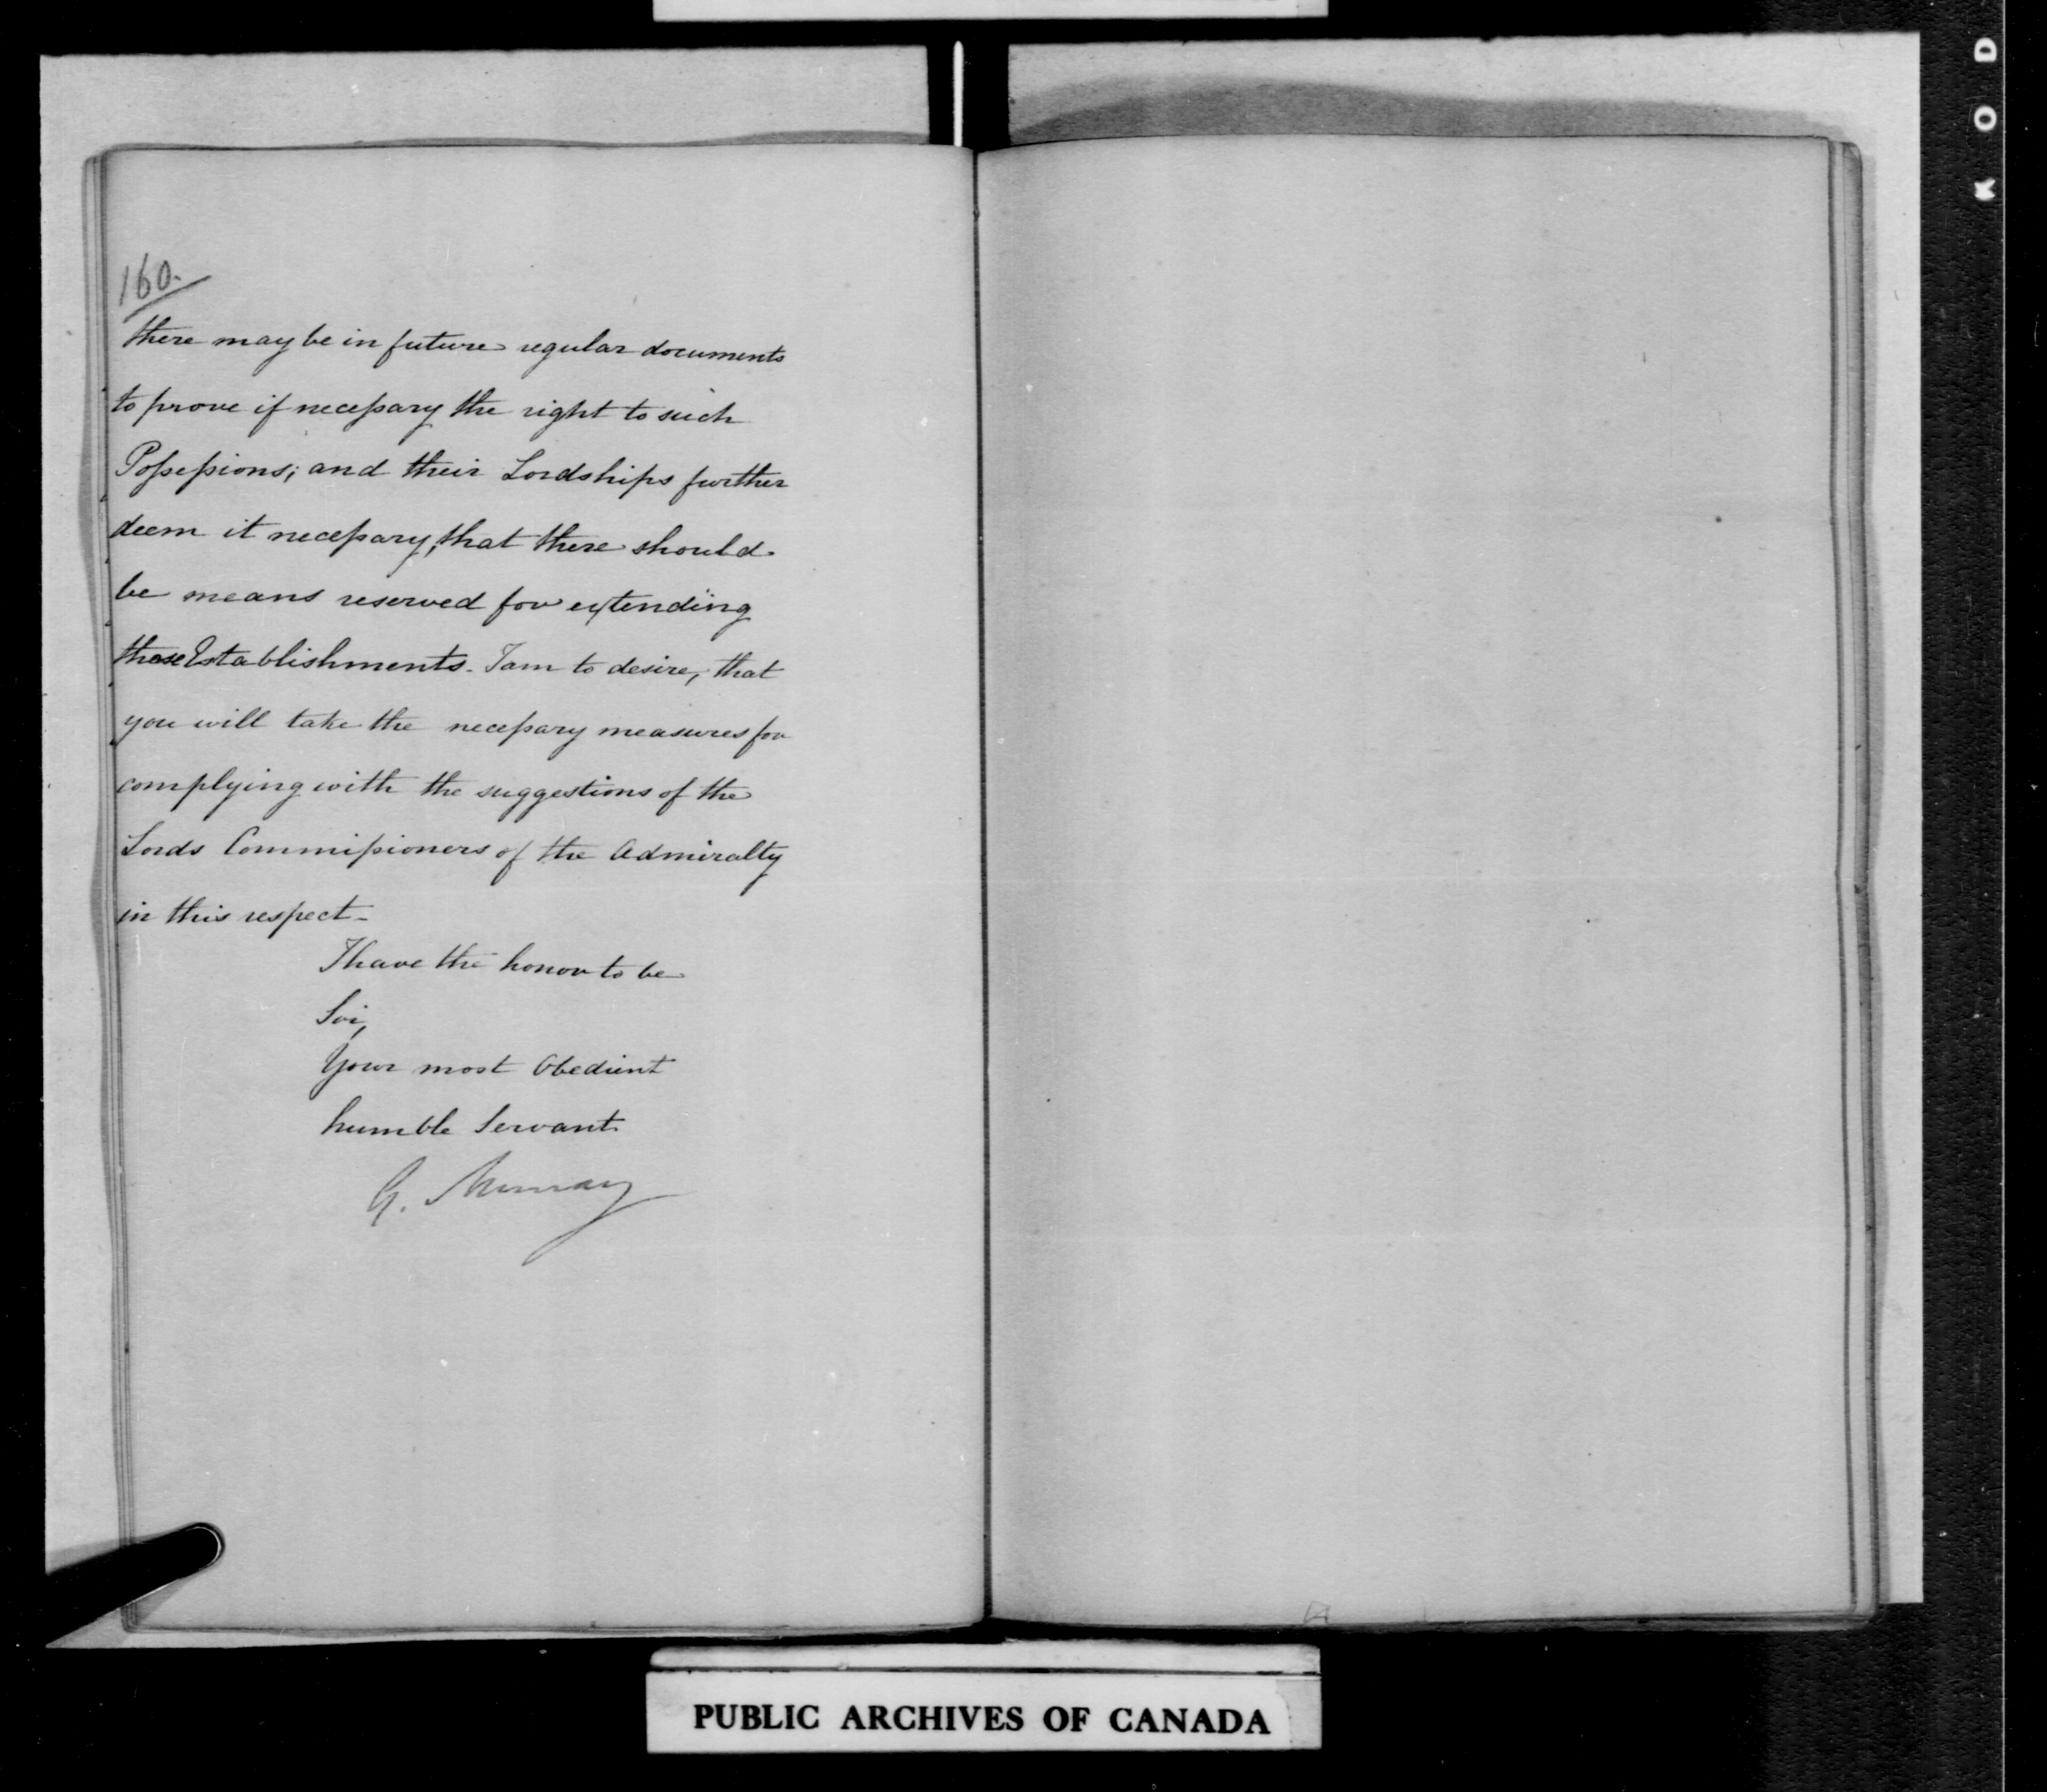 160.
there may be in future regular documents
to prove if necessary the right to such
Possessions; and their Lordships further
deem it necessary, that there should
be means reserved for extending
those Establishments. I am to desire, that
you will take the necessary measures for
complying with the suggestions of the
Lords Commissioners of the Admiralty
in this respect_
I have the honor to be
Sir,
Your most Obedient
humble Servant
G. Murray
PUBLIC ARCHIVES OF CANADA
KOD